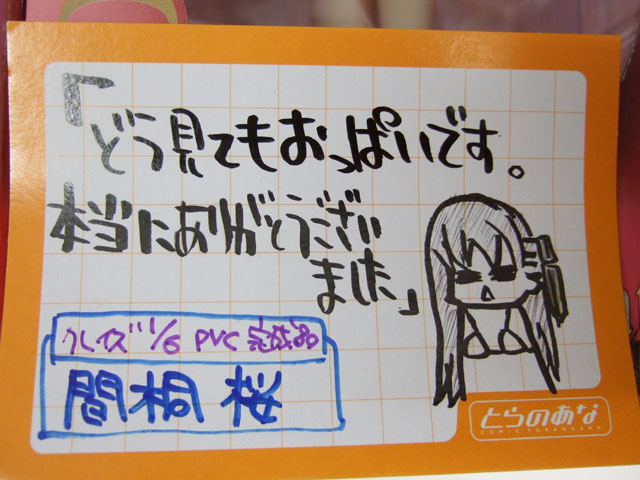 「どう見てもおっぱいです。
本当にありがとうござい
ました」
クレイズ 1/6 PVC 完成品
間桐 桜
とらのあな
COMIC TORANOANA